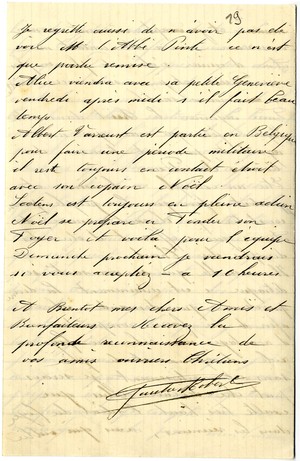 19
Je regrette aussi de n'avoir pas de
voir M. l'Abbé ce n'est
que partie remise.
Alice viendra avec sa petite Geneviève
vendredi après midi s'il fait beau
temps
Albert est partie en Belgique
pour faire une période militaire
il reste toujours en contact étroit
avec son copain Noël.
est toujours en pleine action
Noël se prépare a fonder son
Foyer et voila pour l'équipe
Dimanche prochain je viendrais
si vous acceptez a 10 heures
A Bientot mes chers Amis et
Bienfaiteurs Recevez la
profonde reconnaissance de
vos amis ouvriers Chrétiens